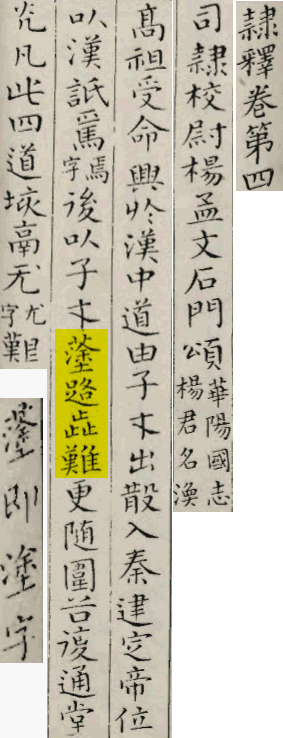 隷釋卷第四
司隷校尉楊孟文石門頌華陽國志楊君名渙
高祖受命興於漢中道由子午出散入秦建定帝位
以漢詆焉焉字後以子午蒤路歮難更隨圍谷復通堂
光凡此四道垓鬲无尤字
蒤即塗字